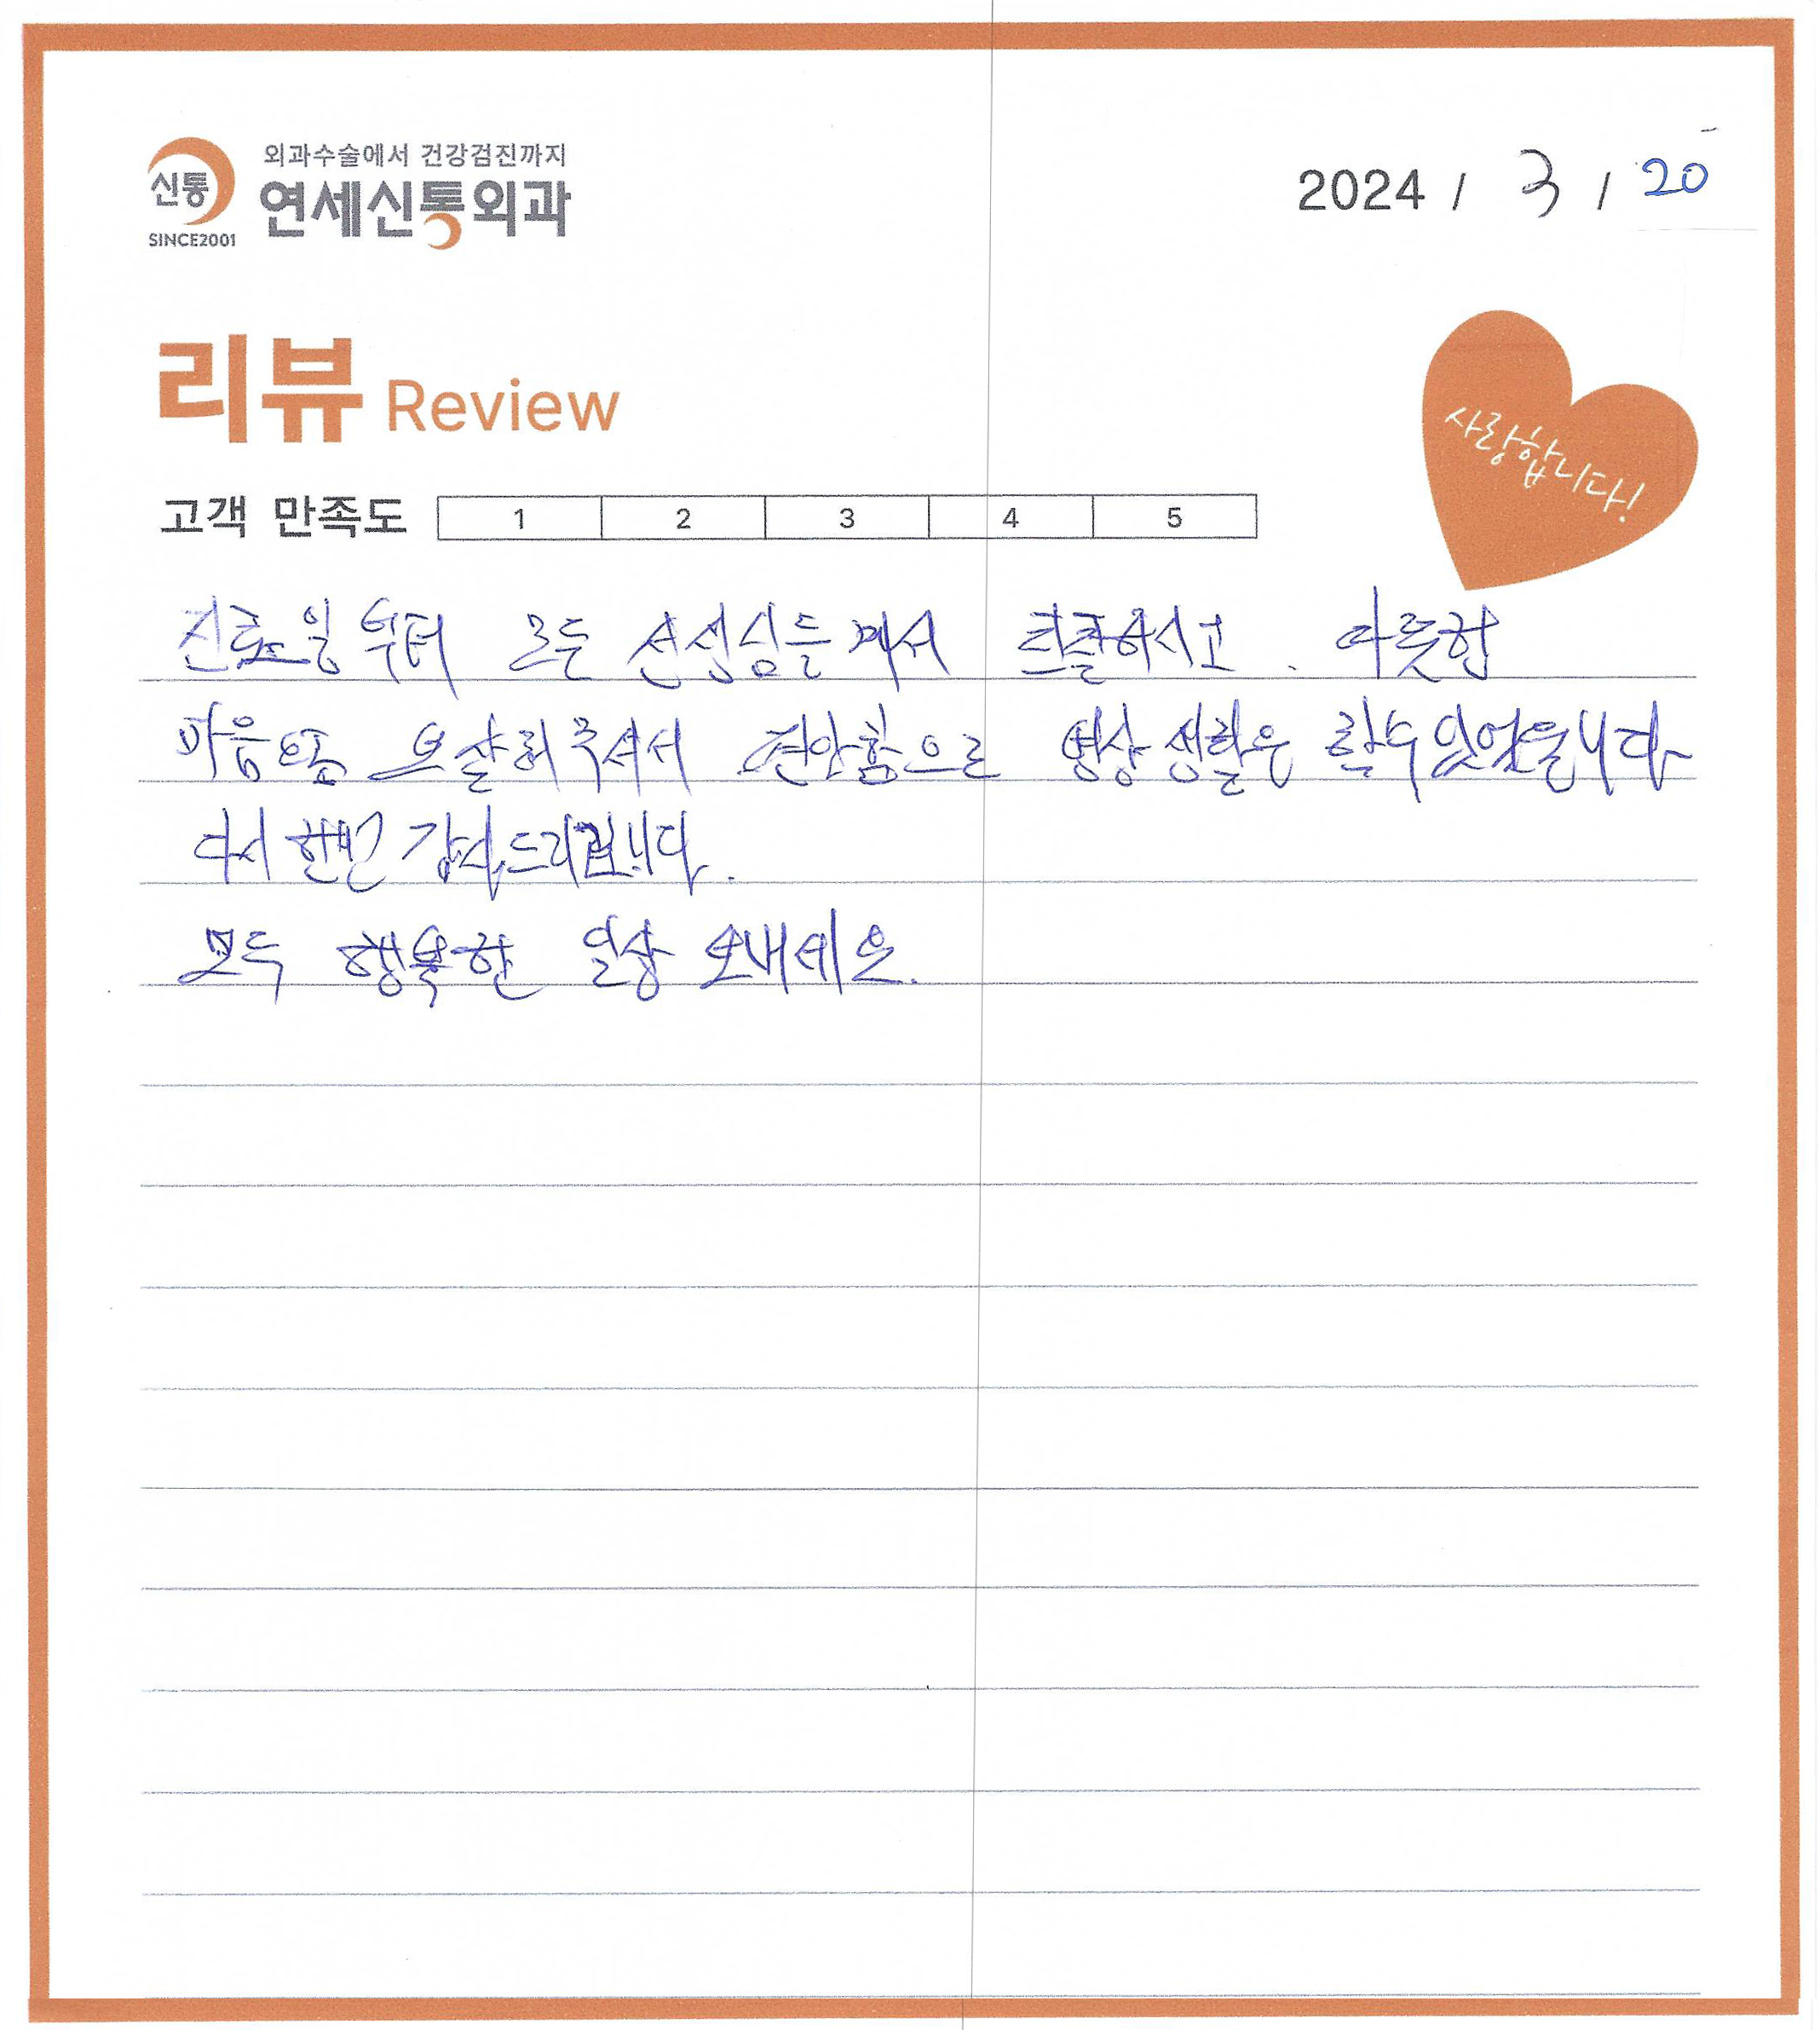 외과수술에서 건강검진까지
신통 연세신통외과
SINCE2001
2024 / 3 / 20
리뷰 Review
사랑합니다!
고객 만족도 1 2 3 4 5
진료일 부터 모든 선생님들께서 친절하시고. 따뜻한
마음으로 보살펴주셔서 편안함으로 병상 생활을 할수있었습니다
다시 한번 감사드립니다.
모두 행복한 일상 보내세요.